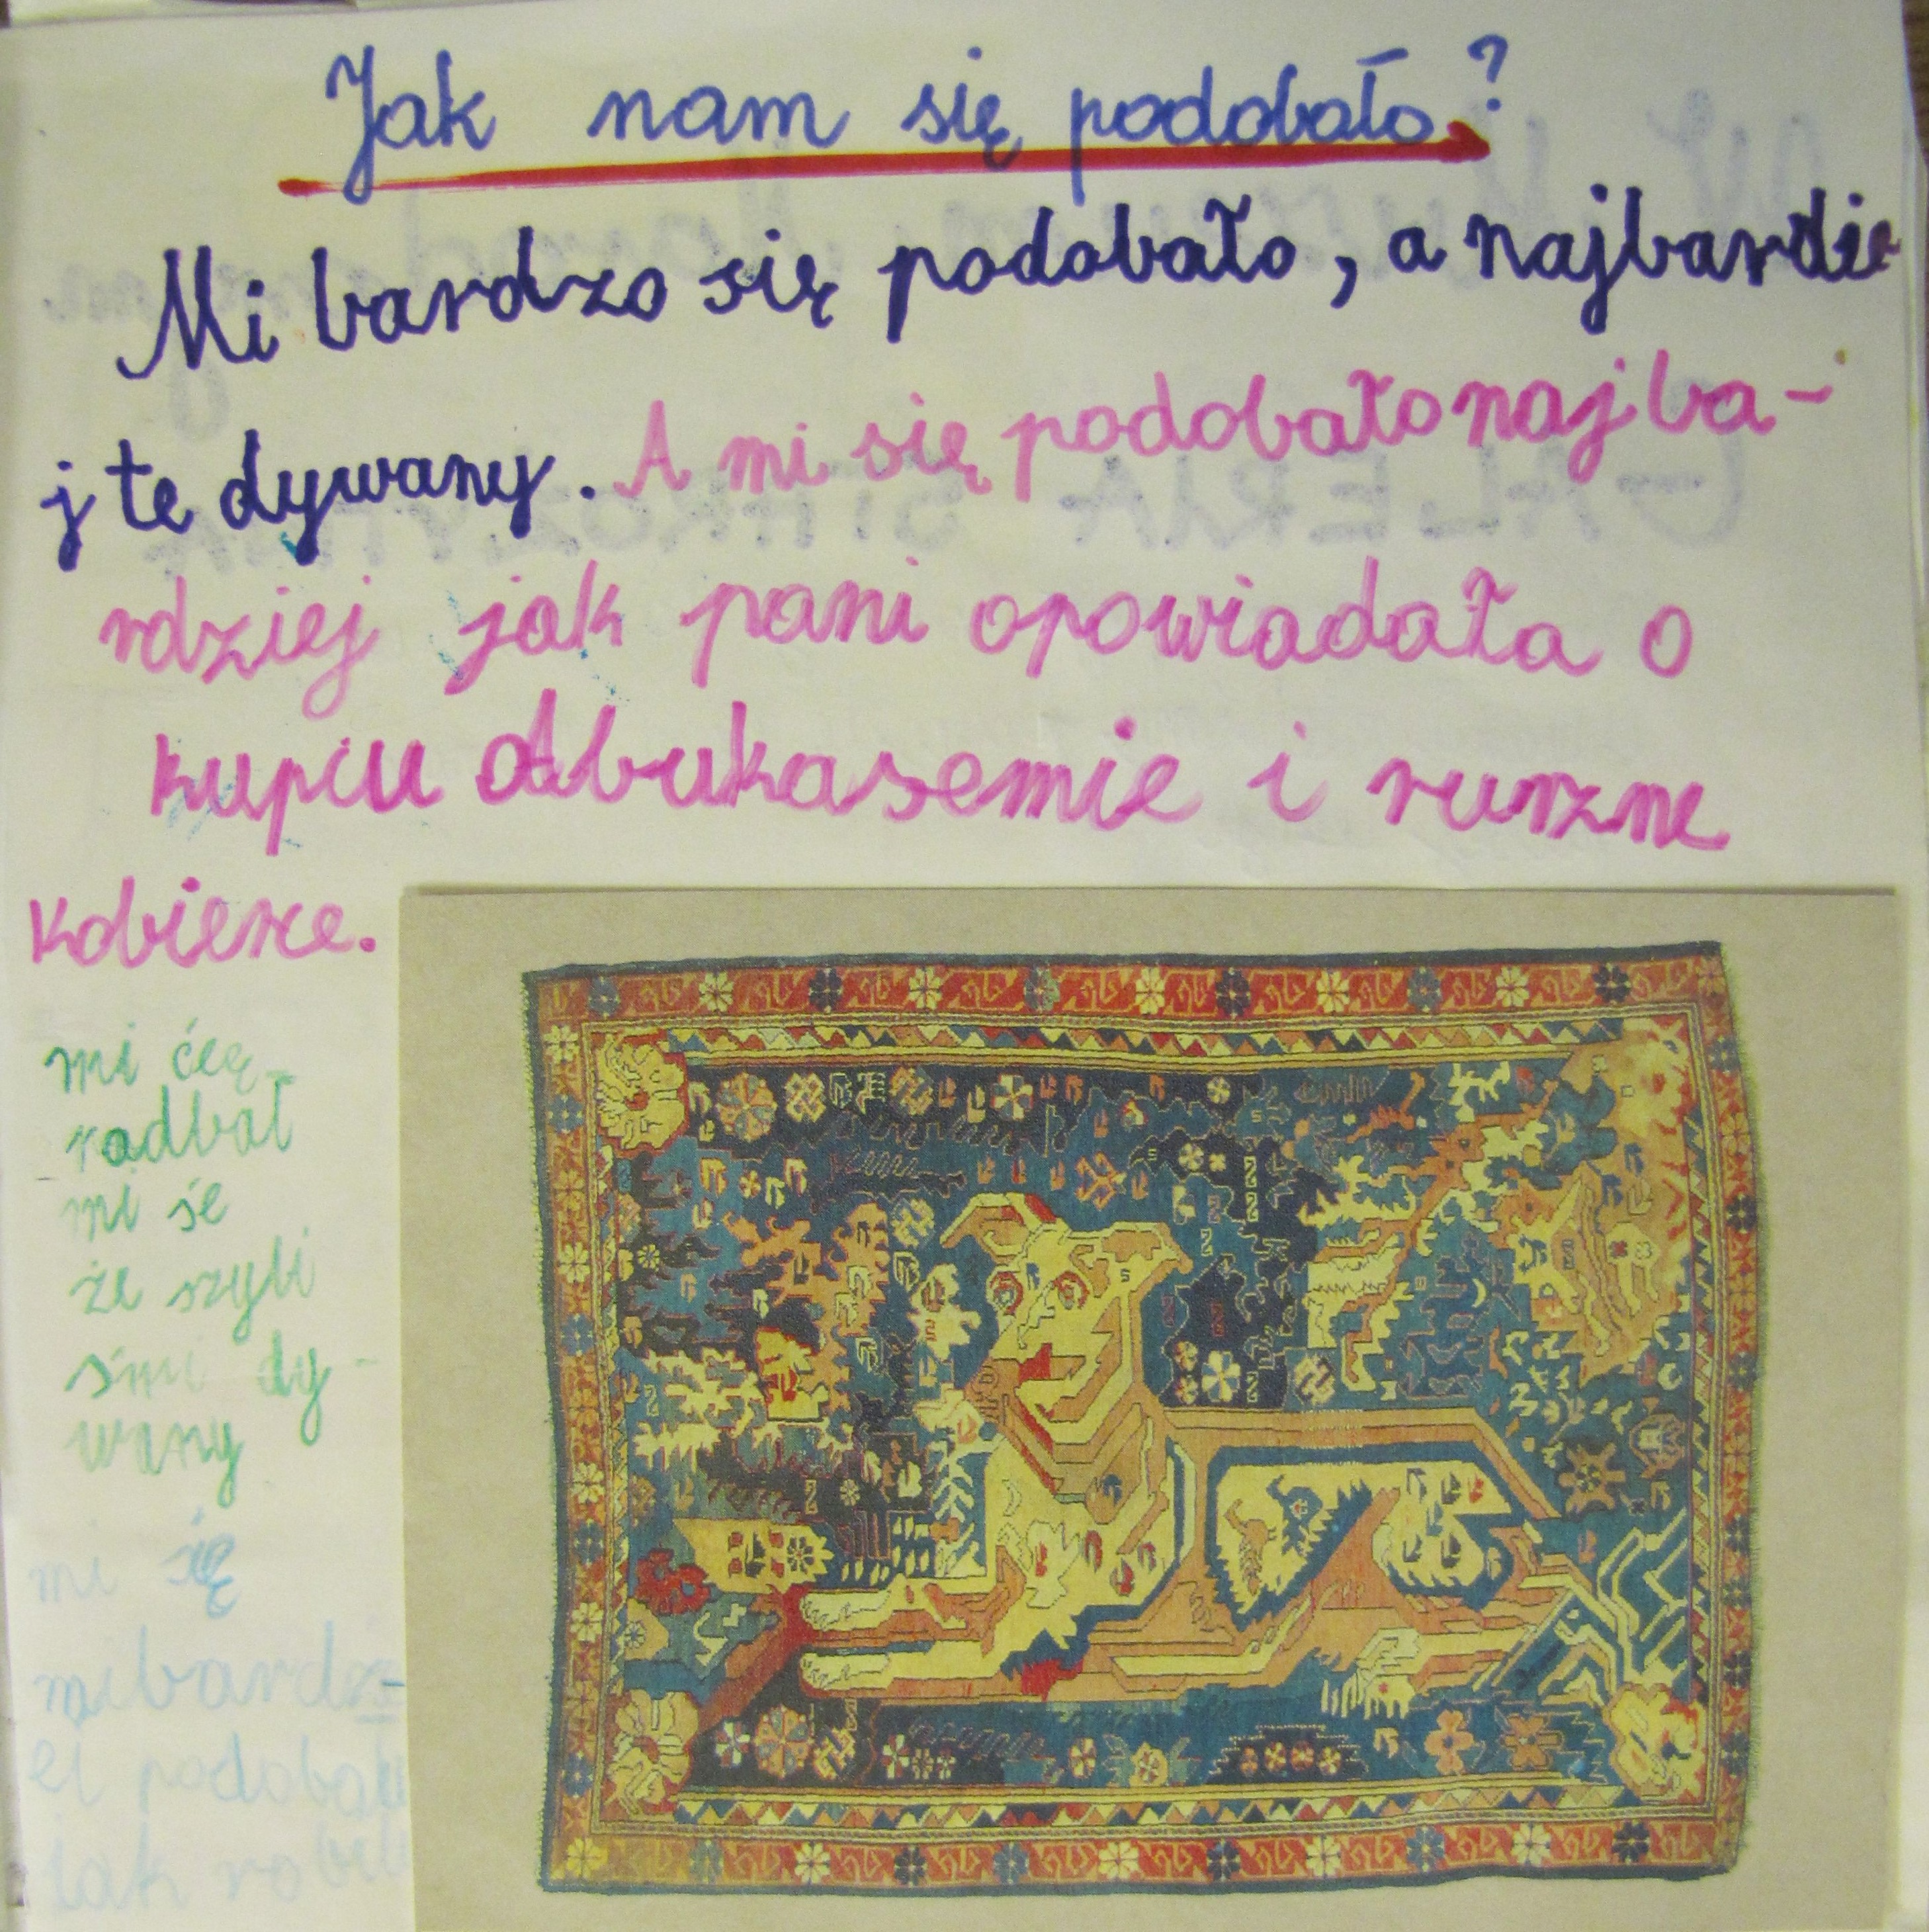 Jak nam się podobało?
Mi bardzo się podobało, a najbardzie
j te dywany. A mi się podobało najba-
rdziej jak pani opowiadała o
kupcu Abukasemie i rurzne
kobierce.
mi ćeę
radbał
mi śe
że szyli
śmi dy-
wany
mi się
mi bardzi-
ei podobało
jak robili